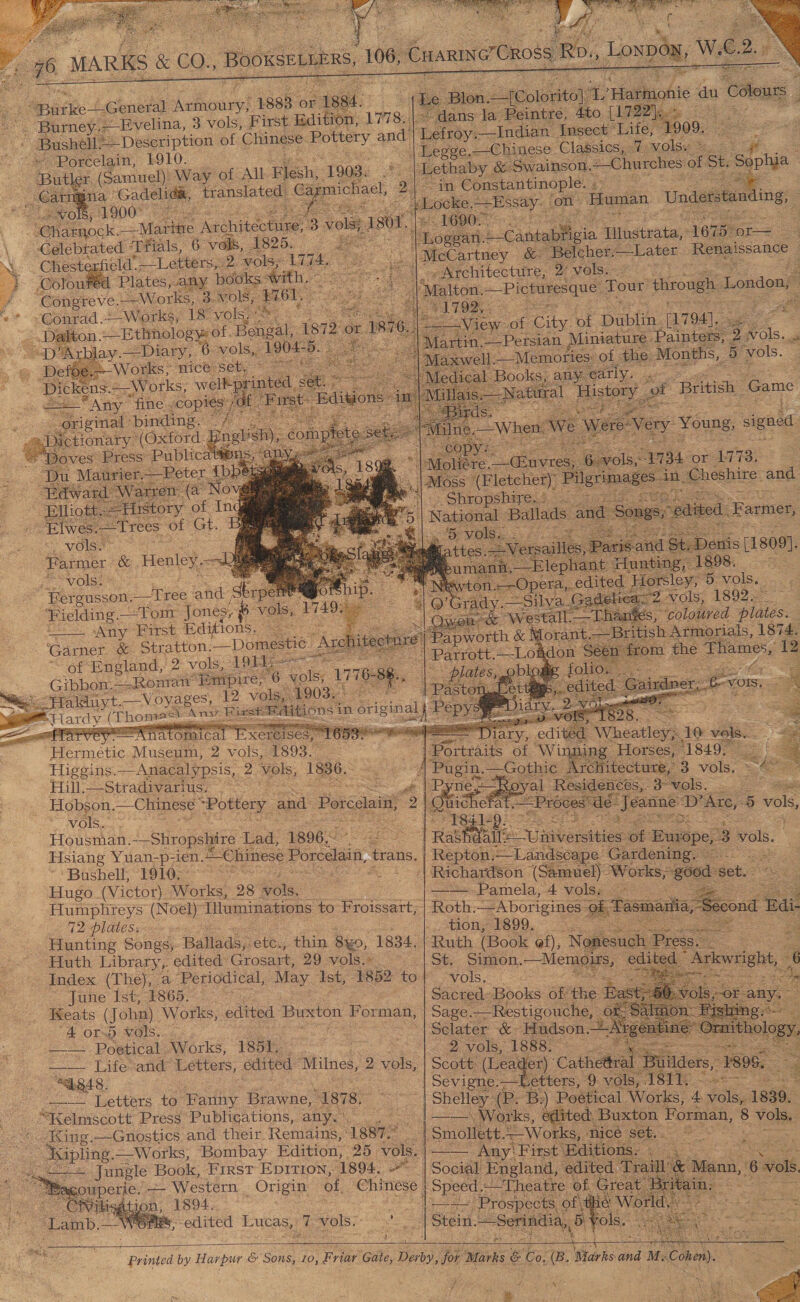 76 MARKS & CO., BOOKSELLERS, 106, CHARING CROSS RD., LONDON, W.C.2.
Burke—General Armoury, 1883 or 1884.
Burney.—Evelina, 3 vols, First Edition, 1778.
Bushell.—Description of Chinese Pottery and
Porcelain, 1910.
Butler (Samuel) Way of All Flesh, 1903.
Carmina Gadelica, translated Carmichael, 2
vols, 1900
Charnock.—Marine Architecture, 3 vols, 1801.
Celebrated Trials, 6 vols, 1825.
Chesterfield.—Letters, 2 vols, 1774.
Coloured Plates, any books with.
Congreve.—Works, 3 vols, 1761.
Conrad.—Works, 18 vols.
Dalton.—Ethnology of Bengal, 1872 or 1876.
D'Arblay.—Diary, 6 vols, 1904-5.
Defoe.—Works, nice set.
Dickens.—Works, well-printed set.
—— Any fine copies of First Editions in
original binding.
Dictionary (Oxford English), complete set.
Doves Press Publications, any.
Du Maurier.—Peter Ibbetson, vols, 189
Edward Warren (a Nov
Elliott.—History of Ind
Elwes.—Trees of Gt. B
vols.
Farmer & Henley.—
vols.
Fergusson.—Tree and Serpent Worship.
Fielding.—Tom Jones, 6 vols, 1749.
—— Any First Editions.
Garner & Stratton.—Domestic Architecture
of England, 2 vols, 1911.
Gibbon.—Roman Empire, 6 vols, 1776-88.
Hakluyt.—Voyages, 12 vols, 1903.
Hardy (Thomas) Any First Editions in original
Harvey.—Anatomical Exercises, 1653.
Hermetic Museum, 2 vols, 1893.
Higgins.—Anacalypsis, 2 vols, 1836.
Hill.—Stradivarius.
Hobson.—Chinese Pottery and Porcelain, 2
vols.
Housman.—Shropshire Lad, 1896.
Hsiang Yuan-p-ien.—Chinese Porcelain, trans.
Bushell, 1910.
Hugo (Victor) Works, 28 vols.
Humphreys (Noel) Illuminations to Froissart,
72 plates.
Hunting Songs, Ballads, etc., thin 8vo, 1834.
Huth Library, edited Grosart, 29 vols.
Index (The), a Periodical, May 1st, 1852 to
June 1st, 1865.
Keats (John) Works, edited Buxton Forman,
4 or 5 vols.
—— Poetical Works, 1851.
—— Life and Letters, edited Milnes, 2 vols,
1848.
—— Letters to Fanny Brawne, 1878.
Kelmscott Press Publications, any.
King.—Gnostics and their Remains, 1887.
Kipling.—Works, Bombay Edition, 25 vols.
—— Jungle Book, FIRST EDITION, 1894.
Lacouperie.—Western Origin of Chinese
Civilisation, 1894.
Lamb.—Works, edited Lucas, 7 vols.
Le Blon.—[Colorito] L'Harmonie du Colours
dans la Peintre, 4to [1722].
Lefroy.—Indian Insect Life, 1909.
Legge.—Chinese Classics, 7 vols.
Lethaby & Swainson.—Churches of St. Sophia
in Constantinople.
Locke.—Essay on Human Understanding,
1690.
Loggan.—Cantabrigia Illustrata, 1675 or—
McCartney & Belcher.—Later Renaissance
Architecture, 2 vols.
Malton.—Picturesque Tour through London,
1792.
——View of City of Dublin [1794].
Martin.—Persian Miniature Painters, 2 vols.
Maxwell.—Memories of the Months, 5 vols.
Medical Books, any early.
Millais.—Natural History of British Game
Birds.
Milne.—When We Were Very Young, signed
copy.
Molière.—Œuvres, 6 vols, 1734 or 1773.
Moss (Fletcher) Pilgrimages in Cheshire and
Shropshire.
National Ballads and Songs, edited Farmer,
5 vols.
Nattes.—Versailles, Paris and St. Denis [1809].
Neumann.—Elephant Hunting, 1898.
Newton.—Opera, edited Horsley, 5 vols.
O'Grady.—Silva Gadelica, 2 vols, 1892.
Owen & Westall.—Thames, coloured plates.
Papworth & Morant.—British Armorials, 1874.
Parrott.—London Seen from the Thames, 12
plates, oblong folio.
Paston Letters, edited Gairdner, 6 vols.
Pepys Diary, 2 vols,
5 vols, 1828.
—— Diary, edited Wheatley, 10 vols.
Portraits of Winning Horses, 1849.
Pugin.—Gothic Architecture, 3 vols.
Pyne.—Royal Residences, 3 vols.
Quicherat.—Procès de Jeanne D'Arc, 5 vols,
1841-9.
Rashdall.—Universities of Europe, 3 vols.
Repton.—Landscape Gardening.
Richardson (Samuel) Works, good set.
—— Pamela, 4 vols.
Roth.—Aborigines of Tasmania, Second Edi-
tion, 1899.
Ruth (Book of), Nonesuch Press.
St. Simon.—Memoirs, edited Arkwright, 6
vols.
Sacred Books of the East, 50 vols, or any.
Sage.—Restigouche, or Salmon Fishing.
Sclater & Hudson.—Argentine Ornithology,
2 vols, 1888.
Scott (Leader) Cathedral Builders, 1899.
Sevigne.—Letters, 9 vols, 1811.
Shelley (P. B.) Poetical Works, 4 vols, 1839.
—— Works, edited Buxton Forman, 8 vols.
Smollett.—Works, nice set.
—— Any First Editions.
Social England, edited Traill & Mann, 6 vols.
Speed.—Theatre of Great Britain.
—— Prospects of the World.
Stein.—Serindia, 5 vols.
Printed by Harpur & Sons, 10, Friar Gate, Derby, for Marks & Co. (B. Marks and M. Cohen).